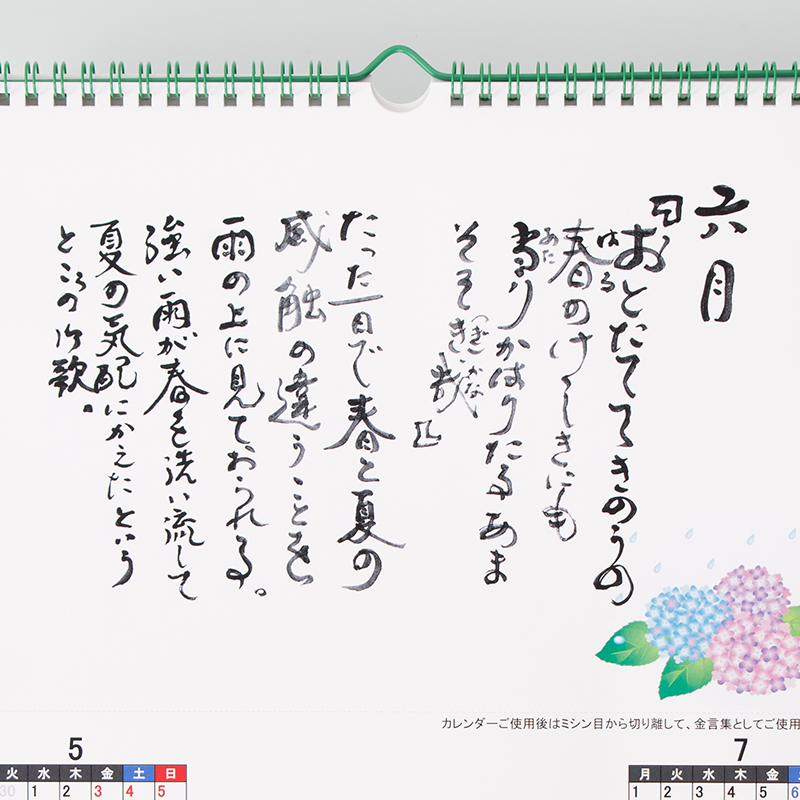 六月
「おとたててきのうの
はる
春のけしきにも
あた
当りかはりたるあま
そそぎ哉」
たった一日で春と夏の
感触の違うことを
雨の上に見ておられる。
強い雨が春を洗い流して
夏の気配にかえたという
ところの御歌。
カレンダーご使用後はミシン目から切り離して、金言集としてご使用
5
火 水 木 金 土 日
30 1 2 3 4 5
7
月 火 水 木 金
1 2 3 4 5 6